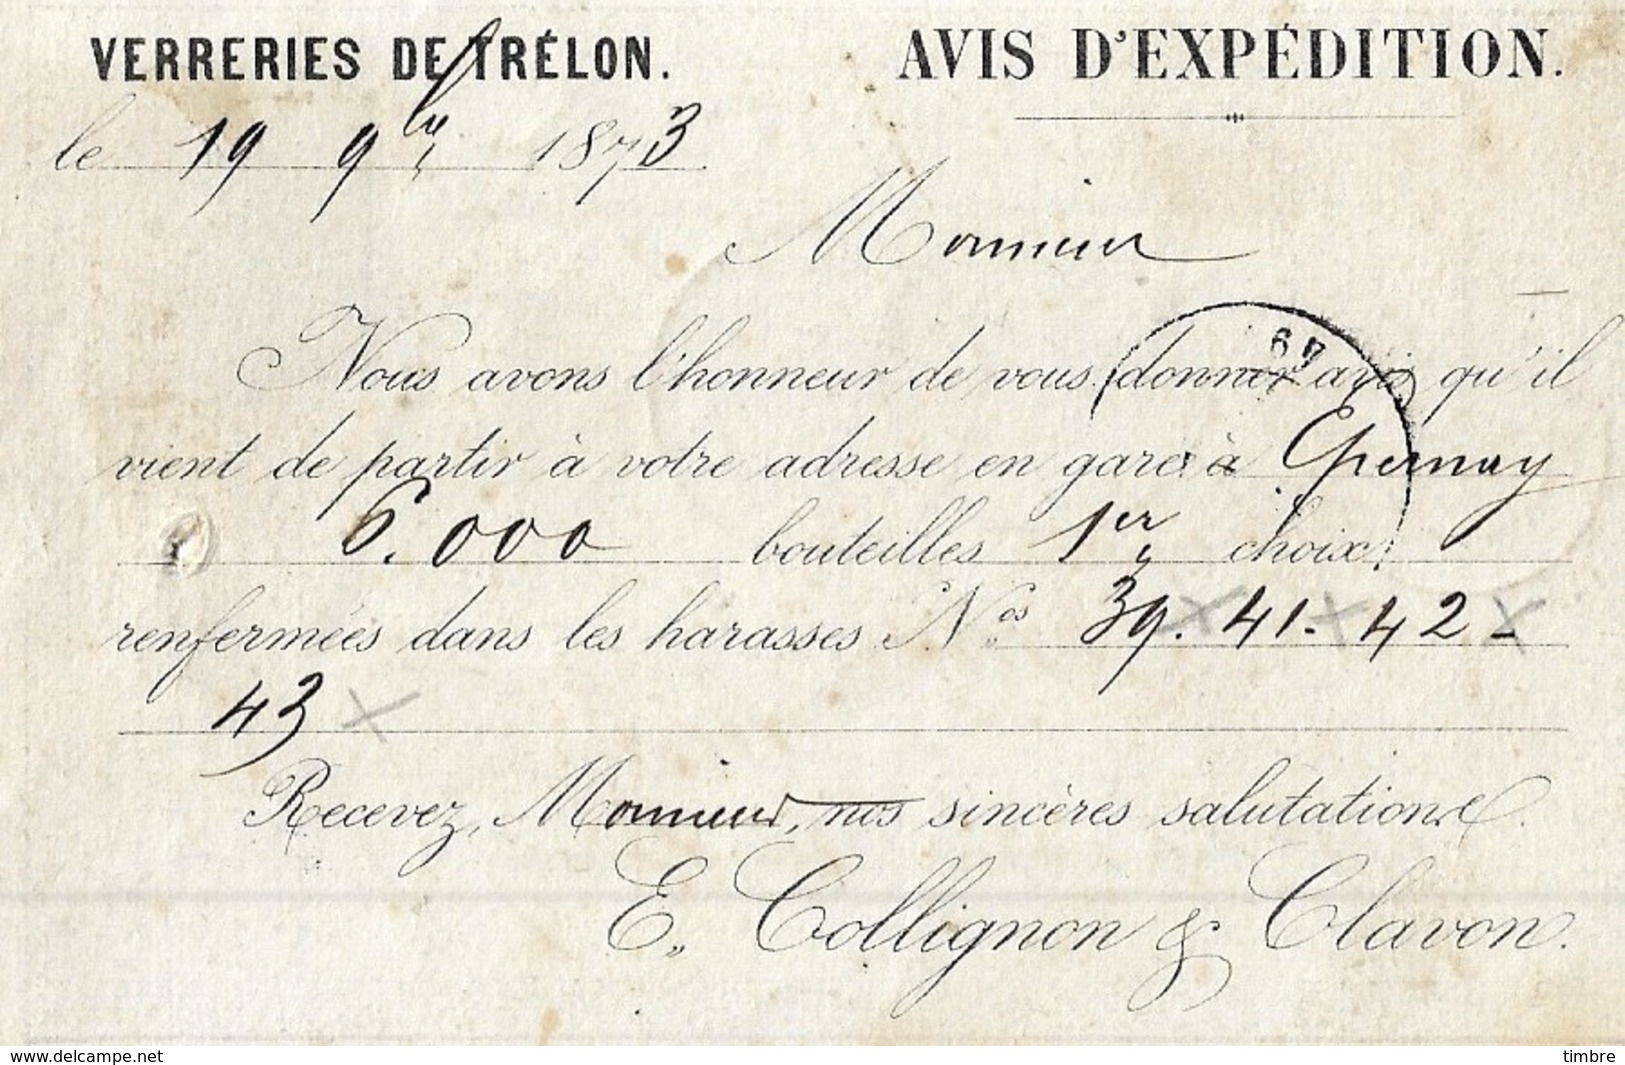 VERRERIES DE TRÉLON.
AVIS D'EXPÉDITION.
le 19 9bre 1873
Monsieur
Nous avons l'honneur de vous donner avis qu'il
vient de partir à votre adresse en gare à Epernay
6.000 bouteilles 1er choix
renfermées dans les harasses Nos 39. 41. 42 -
43
Recevez, Monsieur, nos sincères salutations.
E. Collignon & Clavon.
www.delcampe.net
timbre